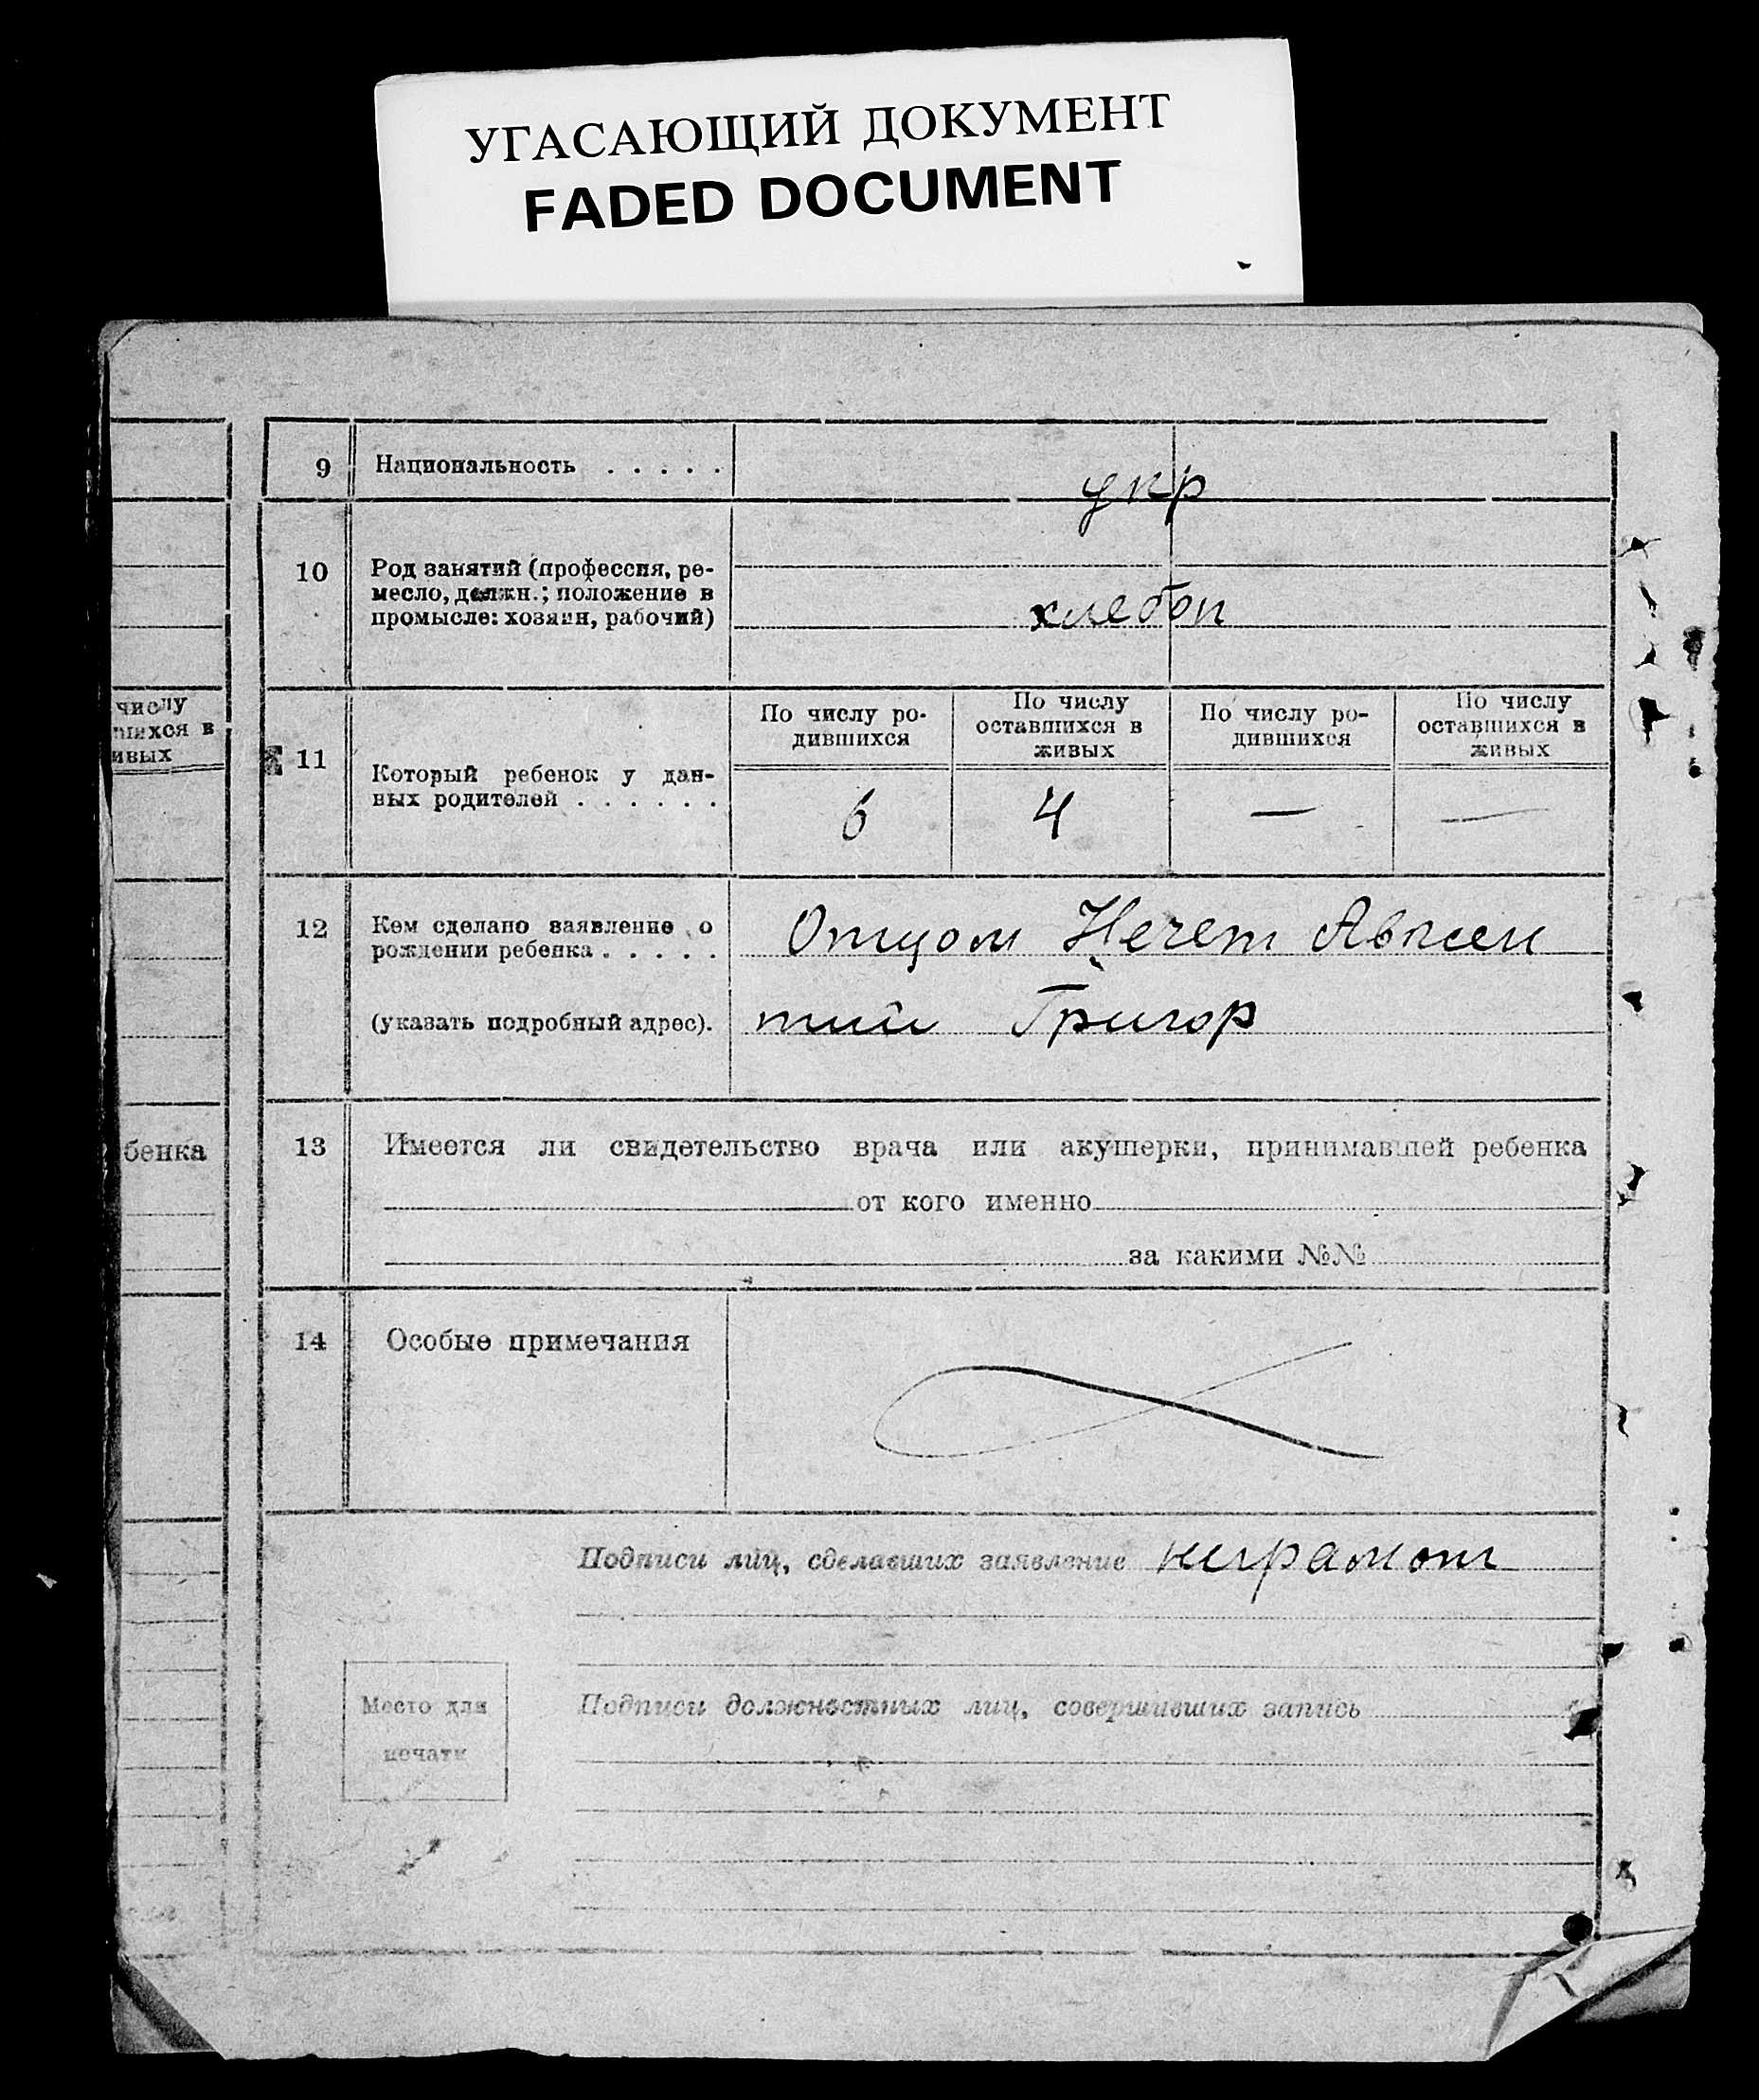 УГАСАЮЩИЙ ДОКУМЕНТ
FADED DOCUMENT
числу
шихся в
ивых
бенка
9 Национальность . . . . .
укр
10 Род занятий (профессия, ре-
месло, должн.; положение в
промысле: хозяин, рабочий)
хлебоп
11 Который ребенок у дан-
ных родителей . . . . . .
По числу ро-
дившихся
По числу
оставшихся в
живых
По числу ро-
дившихся
По числу
оставшихся в
живых
6 4 — —
12 Кем сделано заявление о
рождении ребенка . . . . .
(указать подробный адрес).
Отцом Нечет Авксен
тий Григор
13 Имеется ли свидетельство врача или акушерки, принимавшей ребенка
от кого именно
за какими №№
14 Особые примечания
Подписи лиц, сделавших заявление неграмот
Место для
печати
Подписи должностных лиц, совершивших запись